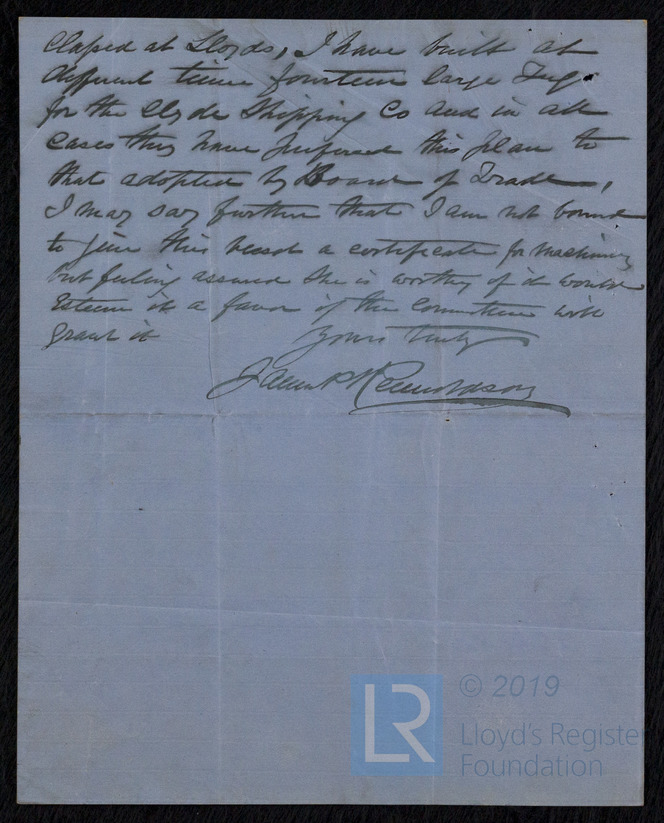 Classed at Lloyds, I have built at
different times fourteen large Tugs
for the Clyde Shipping Co and in all
cases they have prefered this plan to
that adopted by Board of Trade,
I may say further that I am not bound
to give this vessel a certificate for Machinery
but feeling assured she is worthy of it would
Esteem it a favor if the Committee will
grant it
Yours truly
J P Rennoldson
LR
© 2019
Lloyd's Register
Foundation